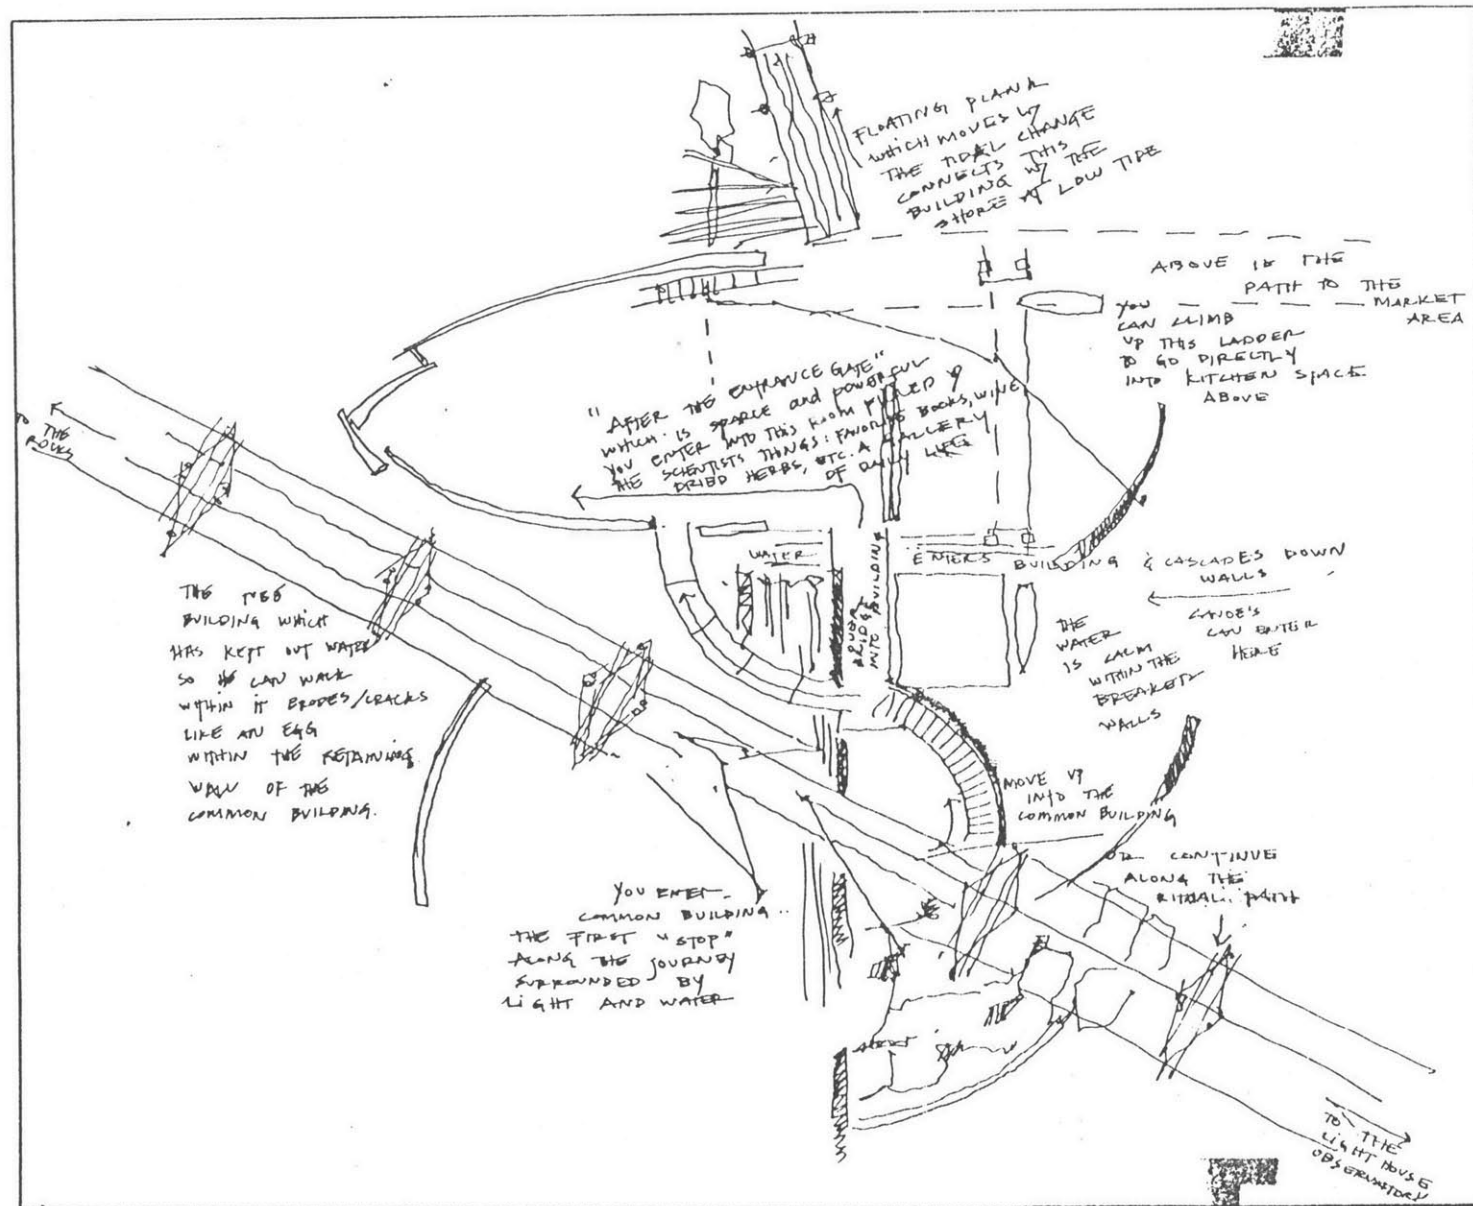 FLOATING PLANK
WHICH MOVES W/
THE TIDAL CHANGE
CONNECTS THIS
BUILDING W/ THE
SHORE AT LOW TIDE
ABOVE IS THE
PATH TO THE
MARKET
AREA
YOU
CAN CLIMB
UP THIS LADDER
TO GO DIRECTLY
INTO KITCHEN SPACE
ABOVE
"AFTER THE ENTRANCE GATE"
WHICH IS SPARCE and POWERFUL
YOU ENTER INTO THIS ROOM FILLED
THE SCIENTISTS THINGS: FAVORITE BOOKS, WINE,
DRIED HERBS, ETC. A GALLERY
OF DAILY LIFE
TO THE
ROCKS
WATER
ENTERS BUILDING & CASCADES DOWN
WALLS
OVER
BRIDGE
INTO BUILDING
CANOE'S
CAN ENTER
HERE
THE
WATER
IS CALM
WITHIN THE
BREAKER
WALLS
THE
BUILDING WHICH
HAS KEPT OUT WATER
SO CAN WALK
WITHIN IT ERODES/CRACKS
LIKE AN EGG
WITHIN THE RETAINING
WALL OF THE
COMMON BUILDING.
MOVE UP
INTO THE
COMMON BUILDING
OR CONTINUE
ALONG THE
RITUAL PATH
YOU ENTER
COMMON BUILDING..
THE FIRST "STOP"
ALONG THE JOURNEY
SURROUNDED BY
LIGHT AND WATER
TO THE
LIGHT HOUSE
OBSERVATORY